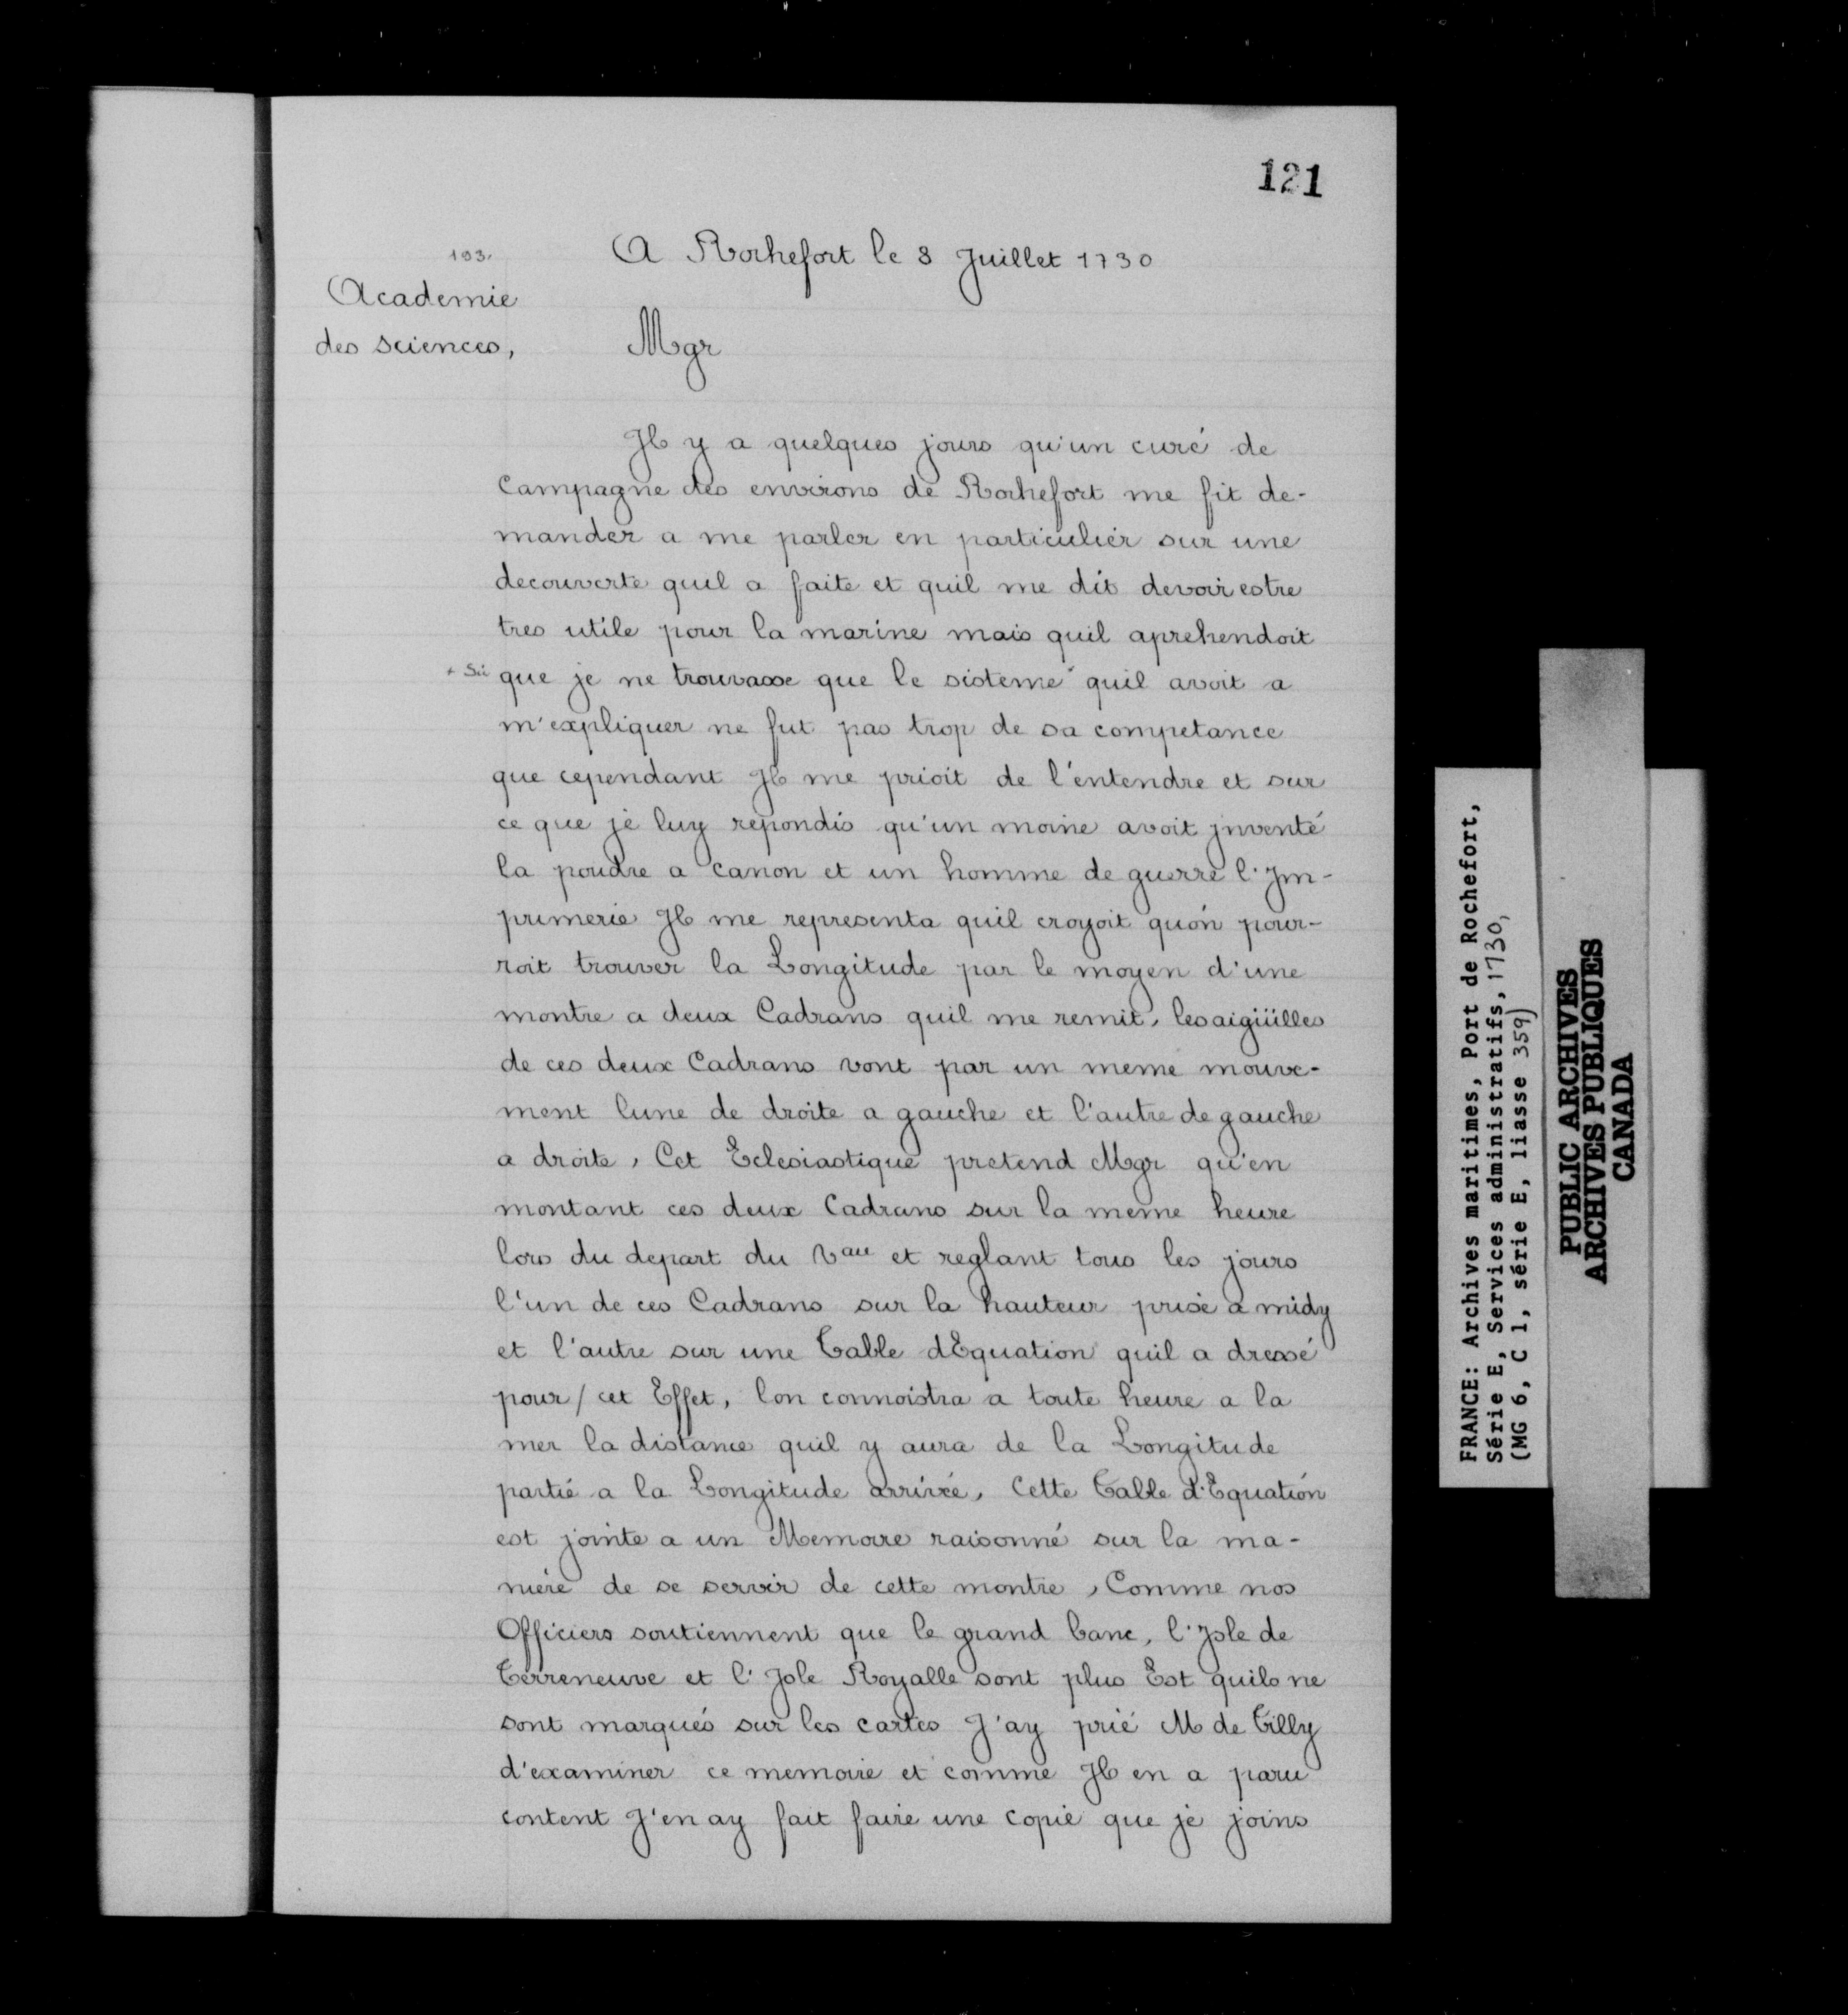 121
A Rochefort le 8 Juillet 1730
193.
Academie
des sciences,
Mgr
Il y a quelques jours qu'un curé de
Campagne des environs de Rochefort me fit de-
mander a me parler en particulier sur une
decouverte quil a faite et quil me dit devoir estre
tres utile pour la marine mais quil aprehendoit
+ Si que je ne trouvasse que le sisteme quil avoit a
m'expliquer ne fut pas trop de sa competance
que cependant Il me prioit de l'entendre et sur
ce que je luy repondis qu'un moine avoit jnventé
la poudre a canon et un homme de guerre l'Im-
primerie Il me representa quil croyoit qu'on pour-
roit trouver la Longitude par le moyen d'une
montre a deux Cadrans quil me remit, les aigüilles
de ces deux Cadrans vont par un meme mouve-
ment lune de droite a gauche et l'autre de gauche
a droite, Cet Eclesiastique pretend Mgr qu'en
montant ces deux Cadrans sur la meme heure
lors du depart du Vau et reglant tous les jours
l'un de ces Cadrans sur la hauteur prise a midy
et l'autre sur une Table dEquation quil a dressé
pour / cet Effet, lon connoistra a toute heure a la
mer la distance quil y aura de la Longitude
partie a la Longitude arrivée, Cette Table d'Equation
est jointe a un Memoire raisonné sur la ma-
niere de se servir de cette montre, Comme nos
Officiers soutiennent que le grand banc, l'Isle de
Terreneuve et l'Isle Royalle sont plus Est quils ne
sont marqués sur les cartes J'ay prié M de Tilly
d'examiner ce memoire et comme Il en a paru
content J'en ay fait faire une copie que je joins
FRANCE: Archives maritimes, Port de Rochefort,
Série E, Services administratifs, 1730,
(MG 6, C 1, série E, liasse 359)
PUBLIC ARCHIVES
ARCHIVES PUBLIQUES
CANADA